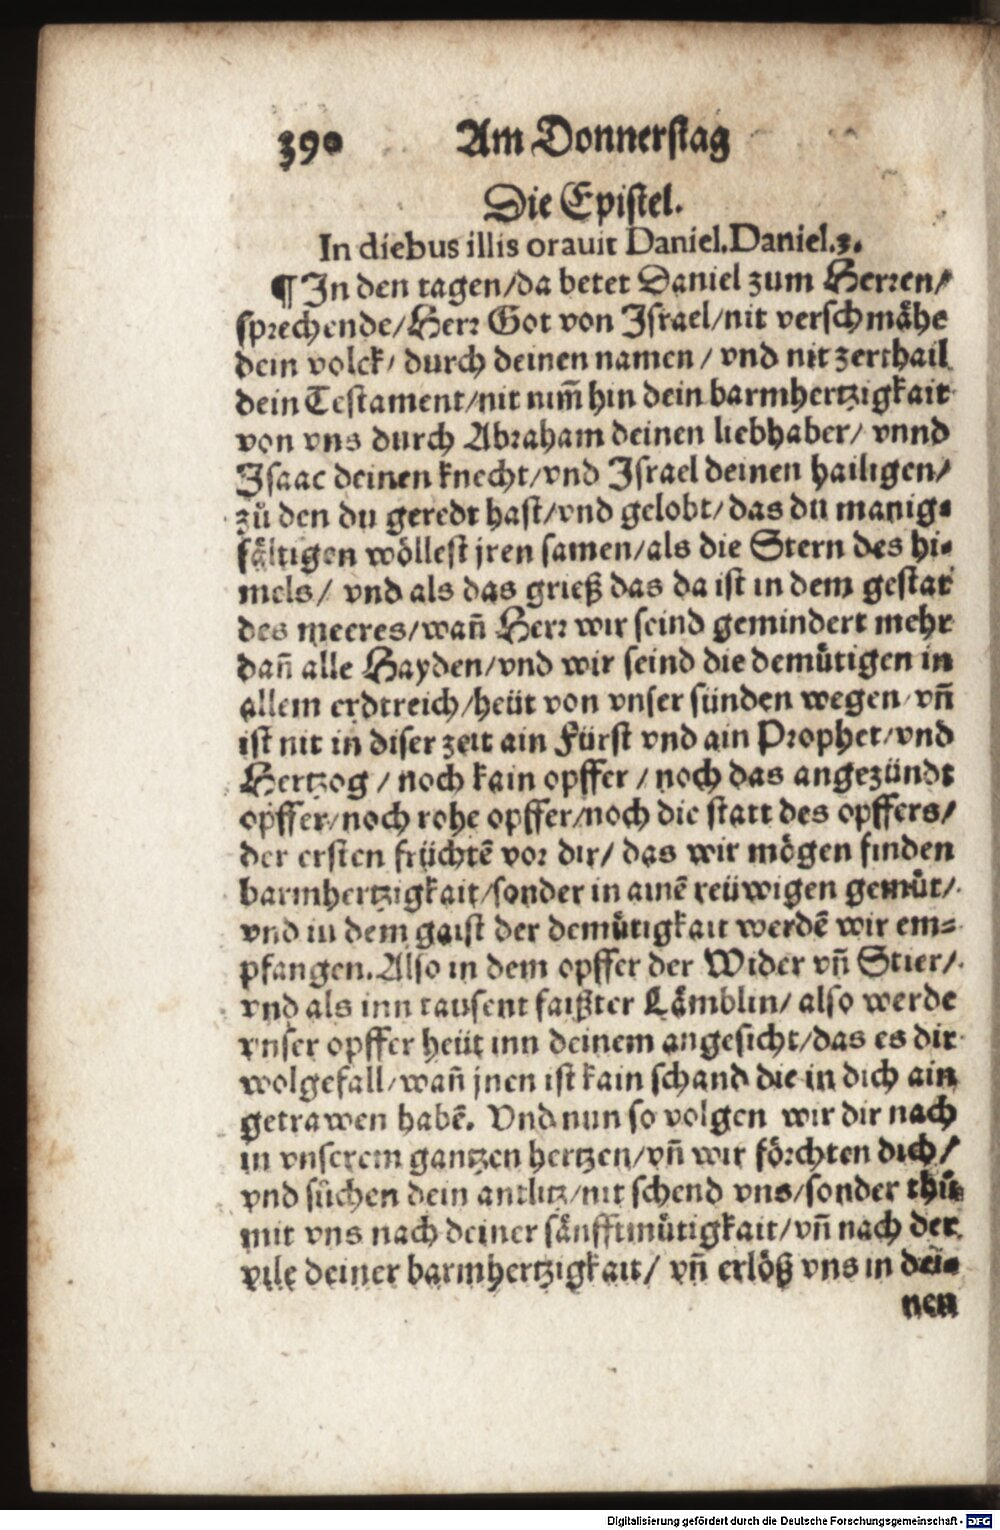 390 Am Donnerstag
Die Epistel.
In diebus illis orauit Daniel. Daniel.3.
¶ In den tagen/da betet Daniel zum Herren/
sprechende/Herr Got von Israel/nit verschmähe
dein volck/ durch deinen namen / vnd nit zerthail
dein Testament/nit nim̃ hin dein barmhertzigkait
von vns durch Abraham deinen liebhaber/ vnnd
Isaac deinen knecht/vnd Israel deinen hailigen/
zů den du geredt hast/vnd gelobt/das du manig⸗
fältigen wöllest jren samen/als die Stern des hi⸗
mels/ vnd als das grieß das da ist in dem gestat
des meeres/wañ Herr wir seind gemindert mehr
dañ alle Hayden/vnd wir seind die demůtigen in
allem erdtreich/heüt von vnser sünden wegen/vñ
ist nit in diser zeit ain Fürst vnd ain Prophet/vnd
Hertzog / noch kain opffer / noch das angezündt
opffer/noch rohe opffer/noch die statt des opffers/
der ersten früchtẽ vor dir/ das wir mögen finden
barmhertzigkait/sonder in ainẽ reüwigen gemůt/
vnd in dem gaist der demůtigkait werdẽ wir em⸗
pfangen. Also in dem opffer der Wider vñ Stier/
vnd als inn tausent faißter Lämblin/ also werde
vnser opffer heüt inn deinem angesicht/das es dir
wolgefall/wañ jnen ist kain schand die in dich ain
getrawen habẽ. Vnd nun so volgen wir dir nach
in vnserem gantzen hertzen/vñ wir förchten dich/
vnd sůchen dein antlitz/nit schend vns/sonder thů
mit vns nach deiner sänfftmůtigkait/vñ nach der
vile deiner barmhertzigkait/ vñ erlöß vns in dei⸗
nen
Digitalisierung gefördert durch die Deutsche Forschungsgemeinschaft - DFG